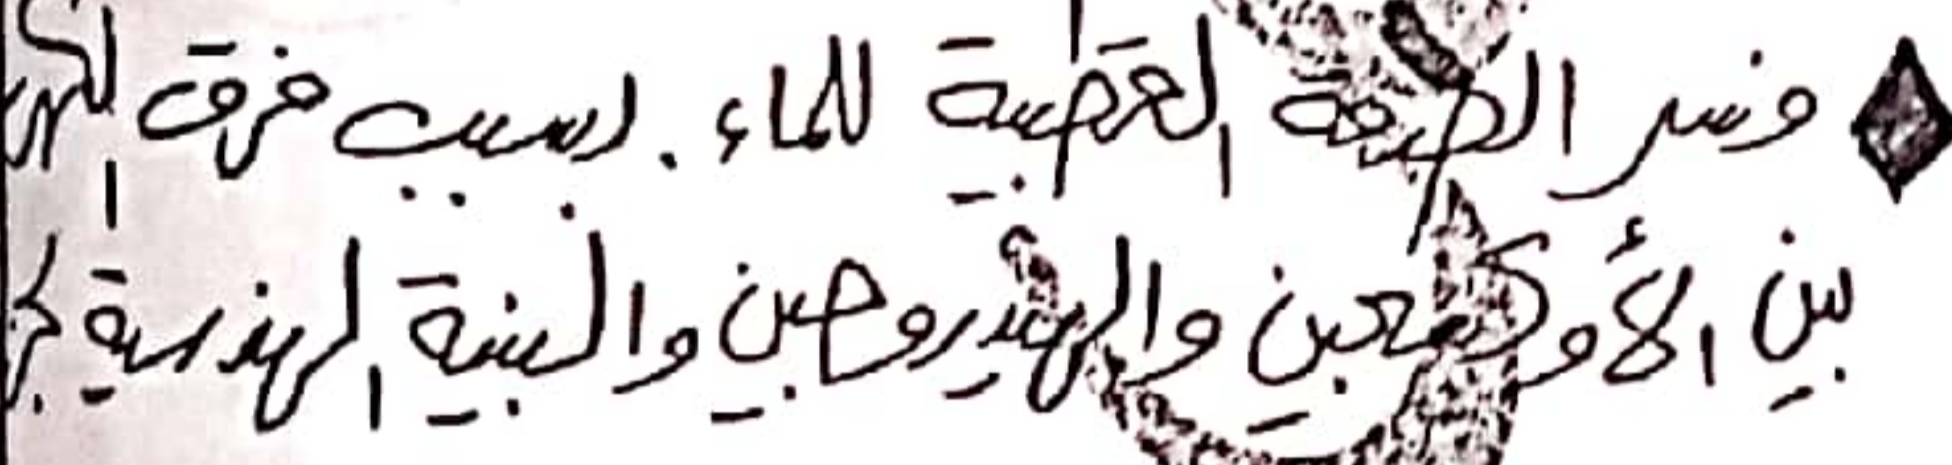 فسر الطبيعة القطبية للماء. بسبب فرق
بين الأوكسجين والهيدروجين والبنية الهندسية